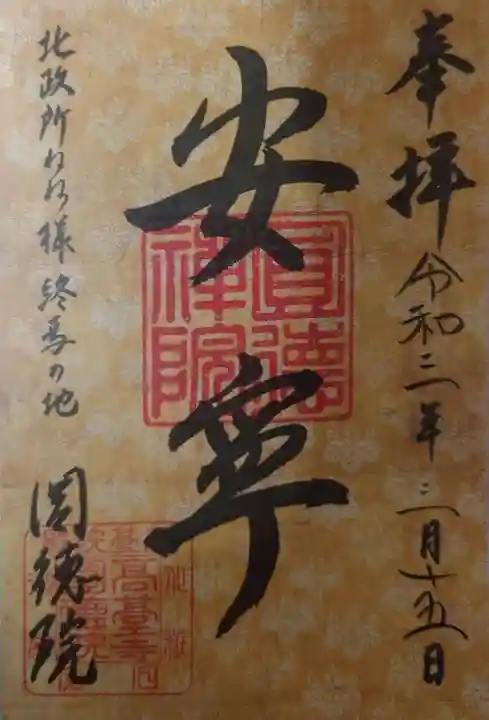 奉拝 令和三年三月十五日
安寧
圓徳禅院
北政所ねね様終焉の地
圓徳院